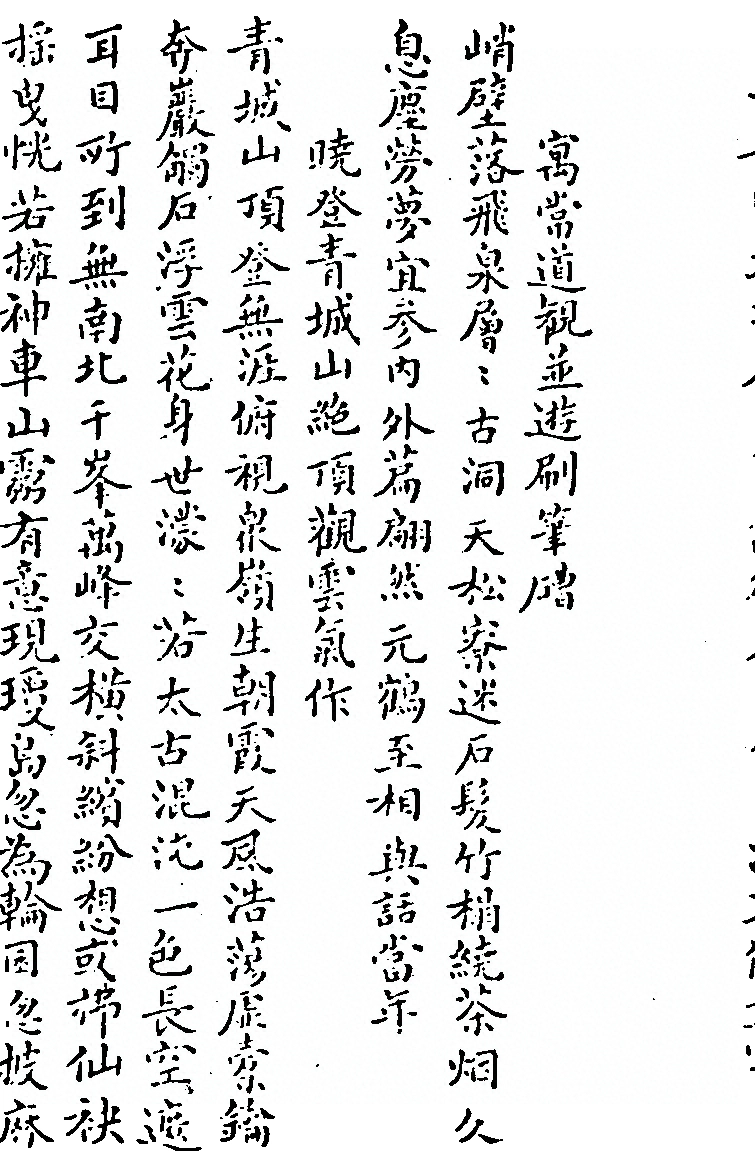 寓常道觀並遊刷筆磵
峭壁落飛泉層〻古洞天松寮迷石髮竹梢繞茶烟久
息塵勞夢宜參內外篇翩然元鶴至相與話當年
曉登青城山絕頂觀雲氣作
青城山頂登無涯俯視衆嶺生朝霞天風浩蕩虛索鑰
奔巖觸石浮雲花身世濛〻若太古混沌一色長空遮
耳目所到無南北千峯萬峰交橫斜繽紛想或拂仙袂
搖曳恍若擁神車山靈有意現瓊島忽為輪囷忽披麻